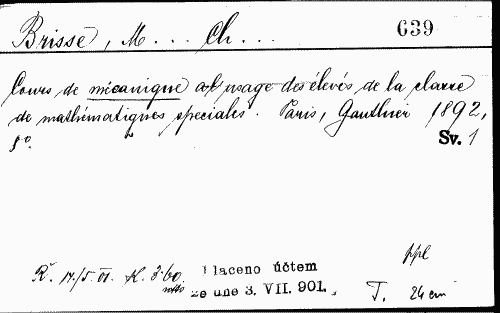 Brisse, M... Ch...
639
Cours de mécanique à l'usage des élevés de la classe
de mathématiques spéciales. Paris, Gauthier 1892,
8°.
Sv. 1
ppl
Ř. 17./5. 01. K. 3·60
netto
laceno účtem
ze dne 3. VII. 901.
T. 24 cm